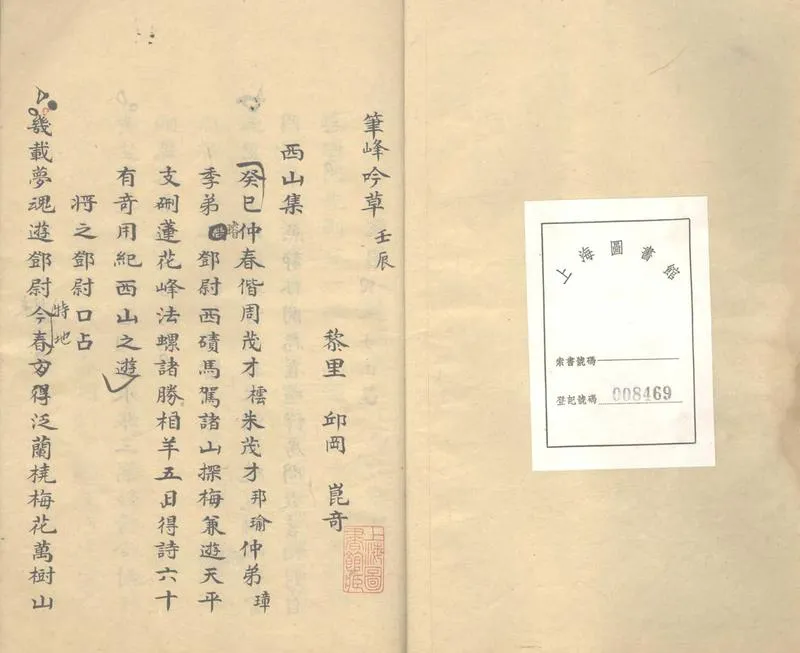 上海圖書館
索書號碼
登記號碼 008469
筆峰吟草 壬辰
黎里 邱岡 崑奇
上海圖書館藏
西山集
癸巳仲春偕周茂才朱茂才邦瑜仲弟璋
季弟鄧尉西磧馬駕諸山探梅兼遊天平
支硎蓮花峰法螺諸勝相羊五日得詩六十
有奇用紀西山之遊
將之鄧尉口占
特地
幾載夢魂遊鄧尉今春方得泛蘭橈梅花萬樹山